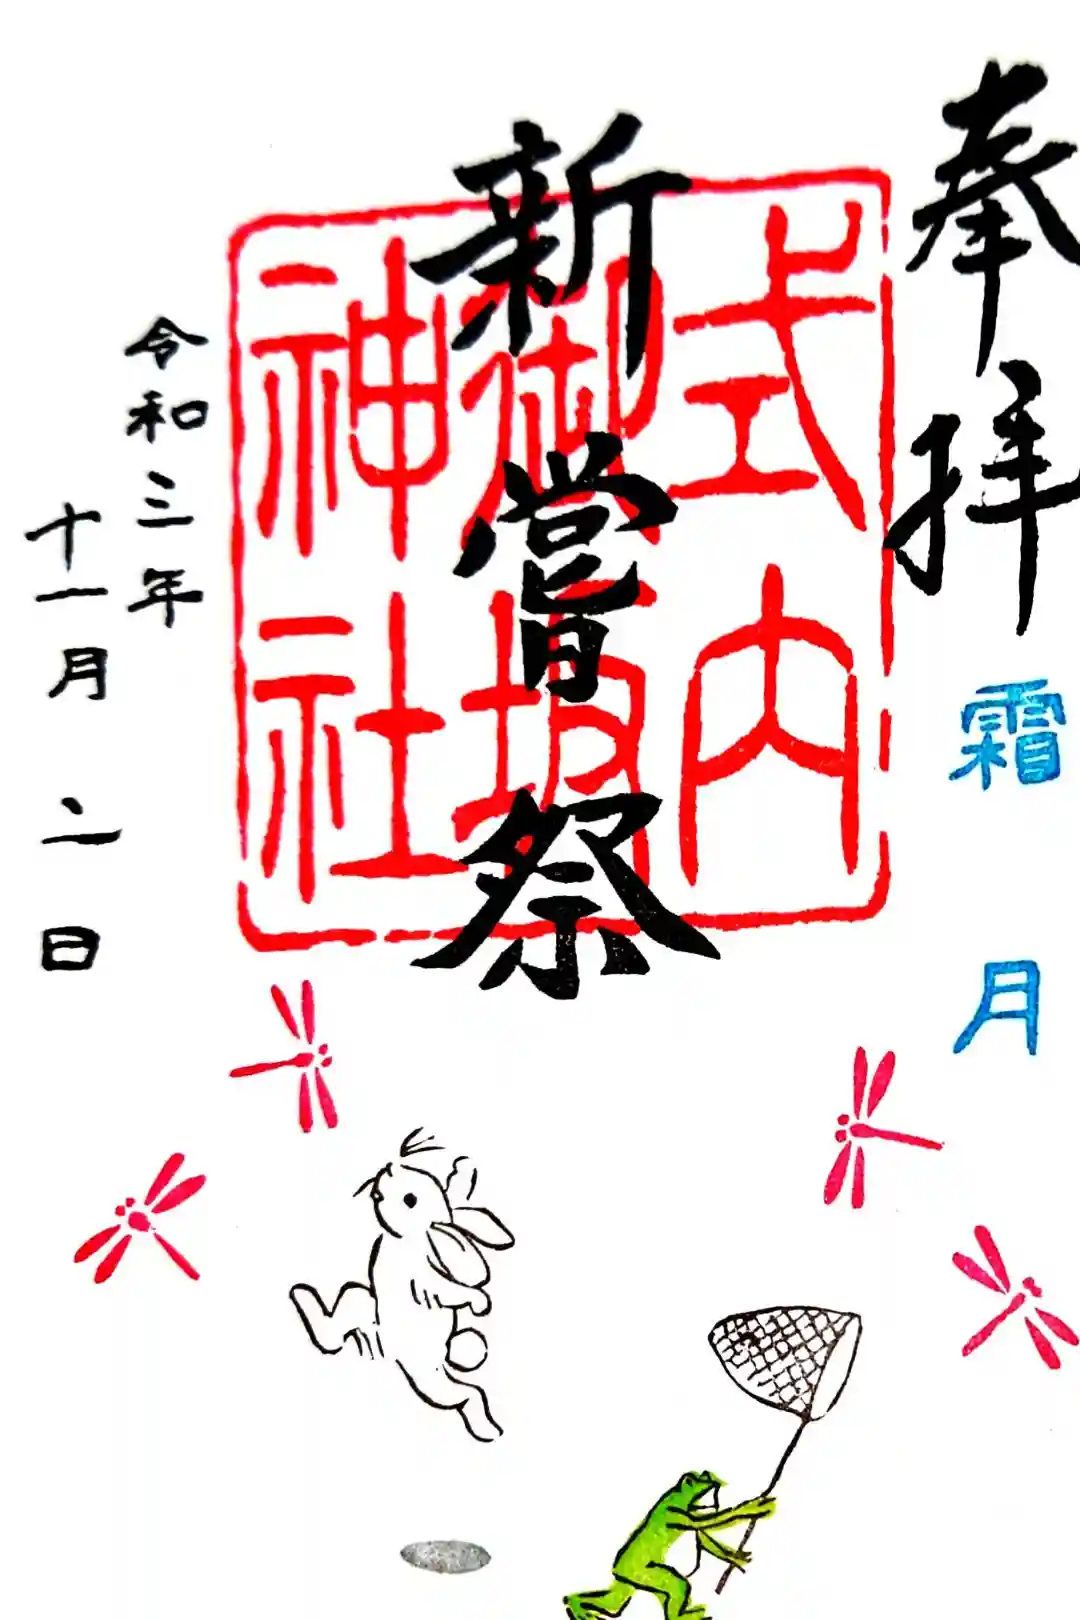 奉拝
霜月
新嘗祭
式内
御坂
神社
令和三年
十一月二日